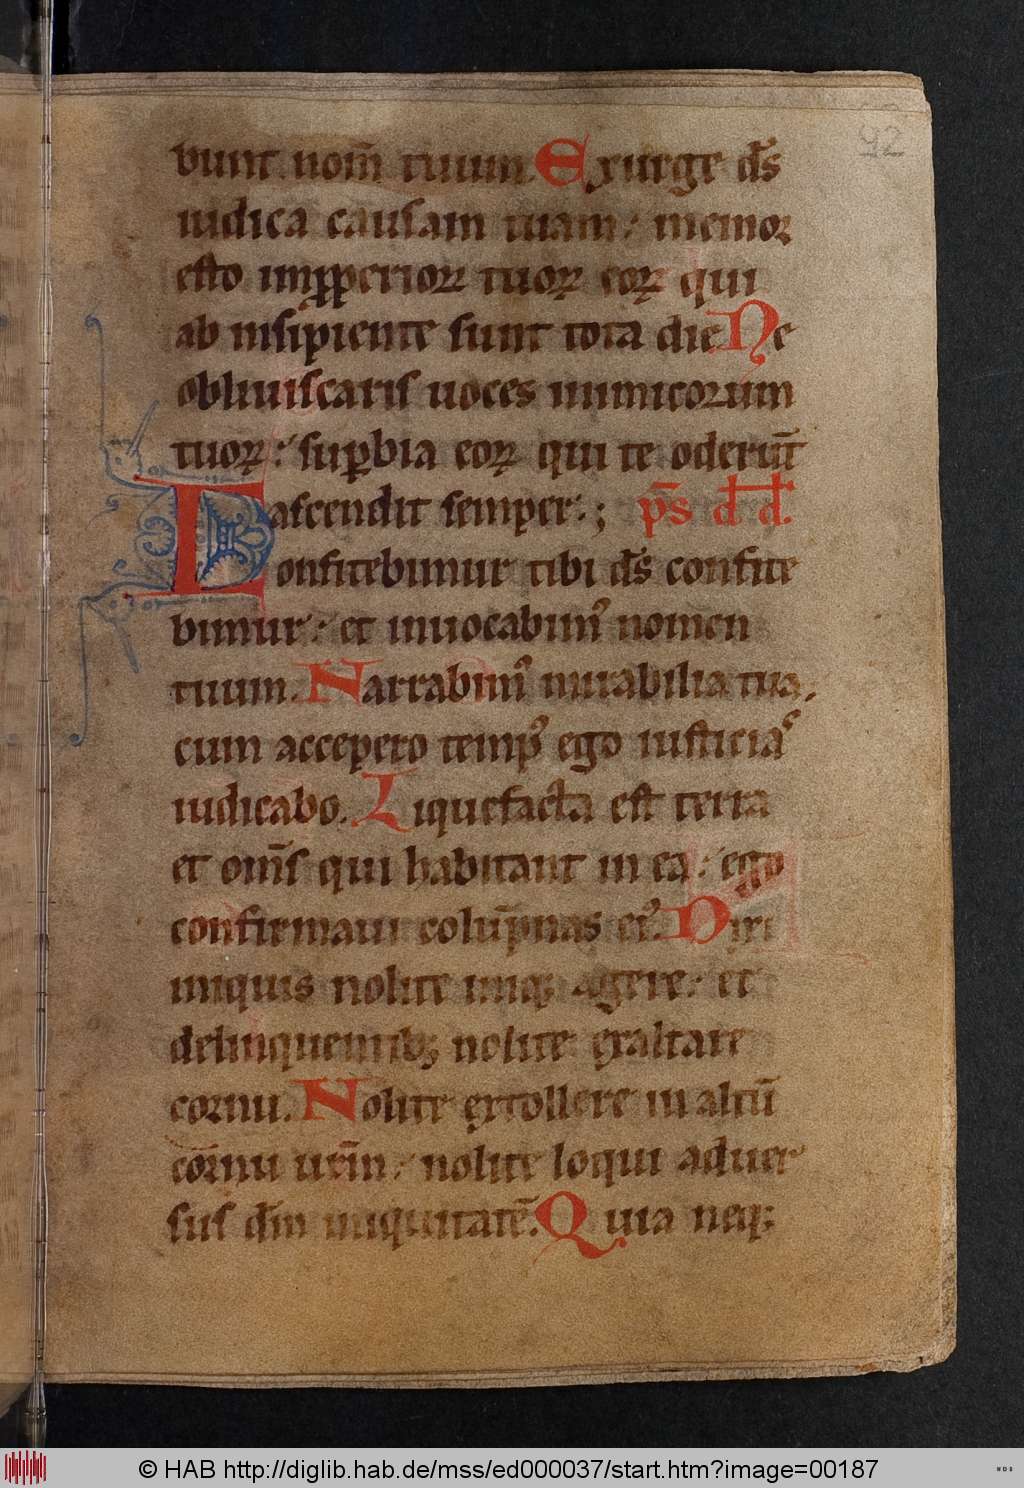 92
bunt nom̄ tuum. Exurge ds̄
iudica causam tuam: memor
esto inp̱p̱erioꝝ tuoꝝ eoꝝ qui
ab insipiente sunt tota die Ne
obliuiscaris uoces inimicorum
tuoꝝ: suꝑbia eoꝝ qui te oderūt
ascendit semper:; ps̄ d̄d̄.
Confitebimur tibi ds̄ confite
bimur: et inuocabimꝰ nomen
tuum. Narrabimꝰ mirabilia tua,
cum accepero tempꝰ ego iusticias
iudicabo. Liquefacta est terra
et om̄s qui habitant in ea: ego
confirmaui colūpnas eiꝰ. Dixi
iniquis nolite iniqꝫ agere: et
delinquentibꝫ nolite exaltare
cornu. Nolite extollere in altū
cornu ur̄m: nolite loqui aduer
sus dm̄ iniquitatē. Quia neqꝫ
© HAB http://diglib.hab.de/mss/ed000037/start.htm?image=00187